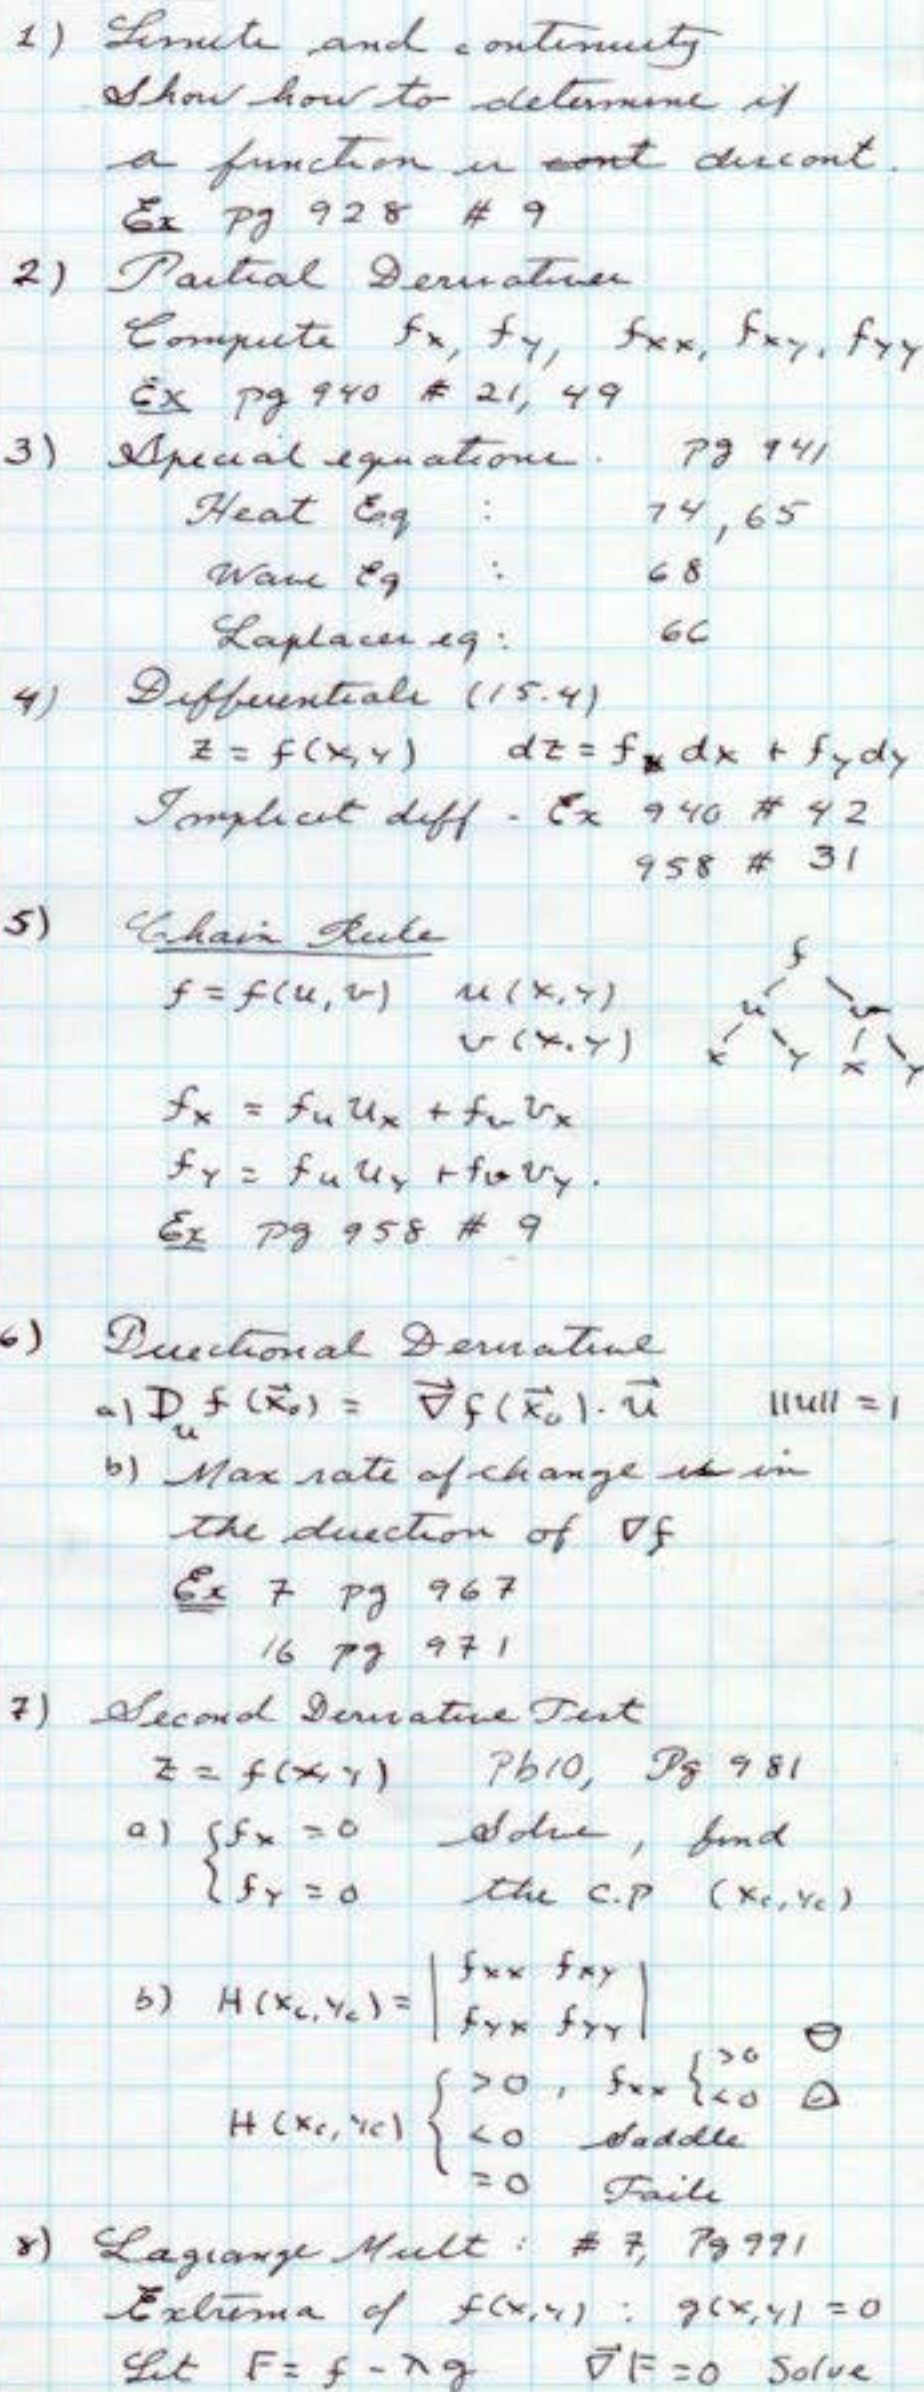 1) Limits and continuity
Show how to determine if
a function is cont discont.
Ex pg 928 # 9
2) Partial Derivatives
Compute fx, fy, fxx, fxy, fyy
Ex pg 940 # 21, 49
3) Special equations. pg 941
Heat Eq : 74, 65
Wave Eq : 68
Laplaces eq: 66
4) Differentials (15.4)
z = f(x,y) dz = fx dx + fy dy
Implicit diff - Ex 940 # 42
958 # 31
5) Chain Rule
f
f = f(u,v) u(x,y)
u v
v(x,y)
x y x y
fx = fu ux + fv vx
fy = fu uy + fv vy.
Ex pg 958 # 9
6) Directional Derivative
a) Du f(x⃗₀) = ∇⃗f(x⃗₀)·u⃗ ||u|| = 1
b) Max rate of change is in
the direction of ∇f
Ex 7 pg 967
16 pg 971
7) Second Derivative Test
z = f(x,y) Pb10, Pg 981
a) { fx = 0 Solve, find
{ fy = 0 the c.p (xc, yc)
b) H(xc, yc) = | fxx fxy |
| fyx fyy |
H(xc, yc) { >0, fxx { >0
<0
<0 Saddle
=0 Fails
8) Lagrange Mult: # 7, Pg 991
Extrema of f(x,y) : g(x,y) = 0
Let F = f - λg ∇⃗F = 0 Solve